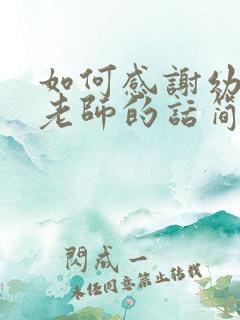 如何感謝幼
老師的話簡
閃成一
未经同意禁止转载